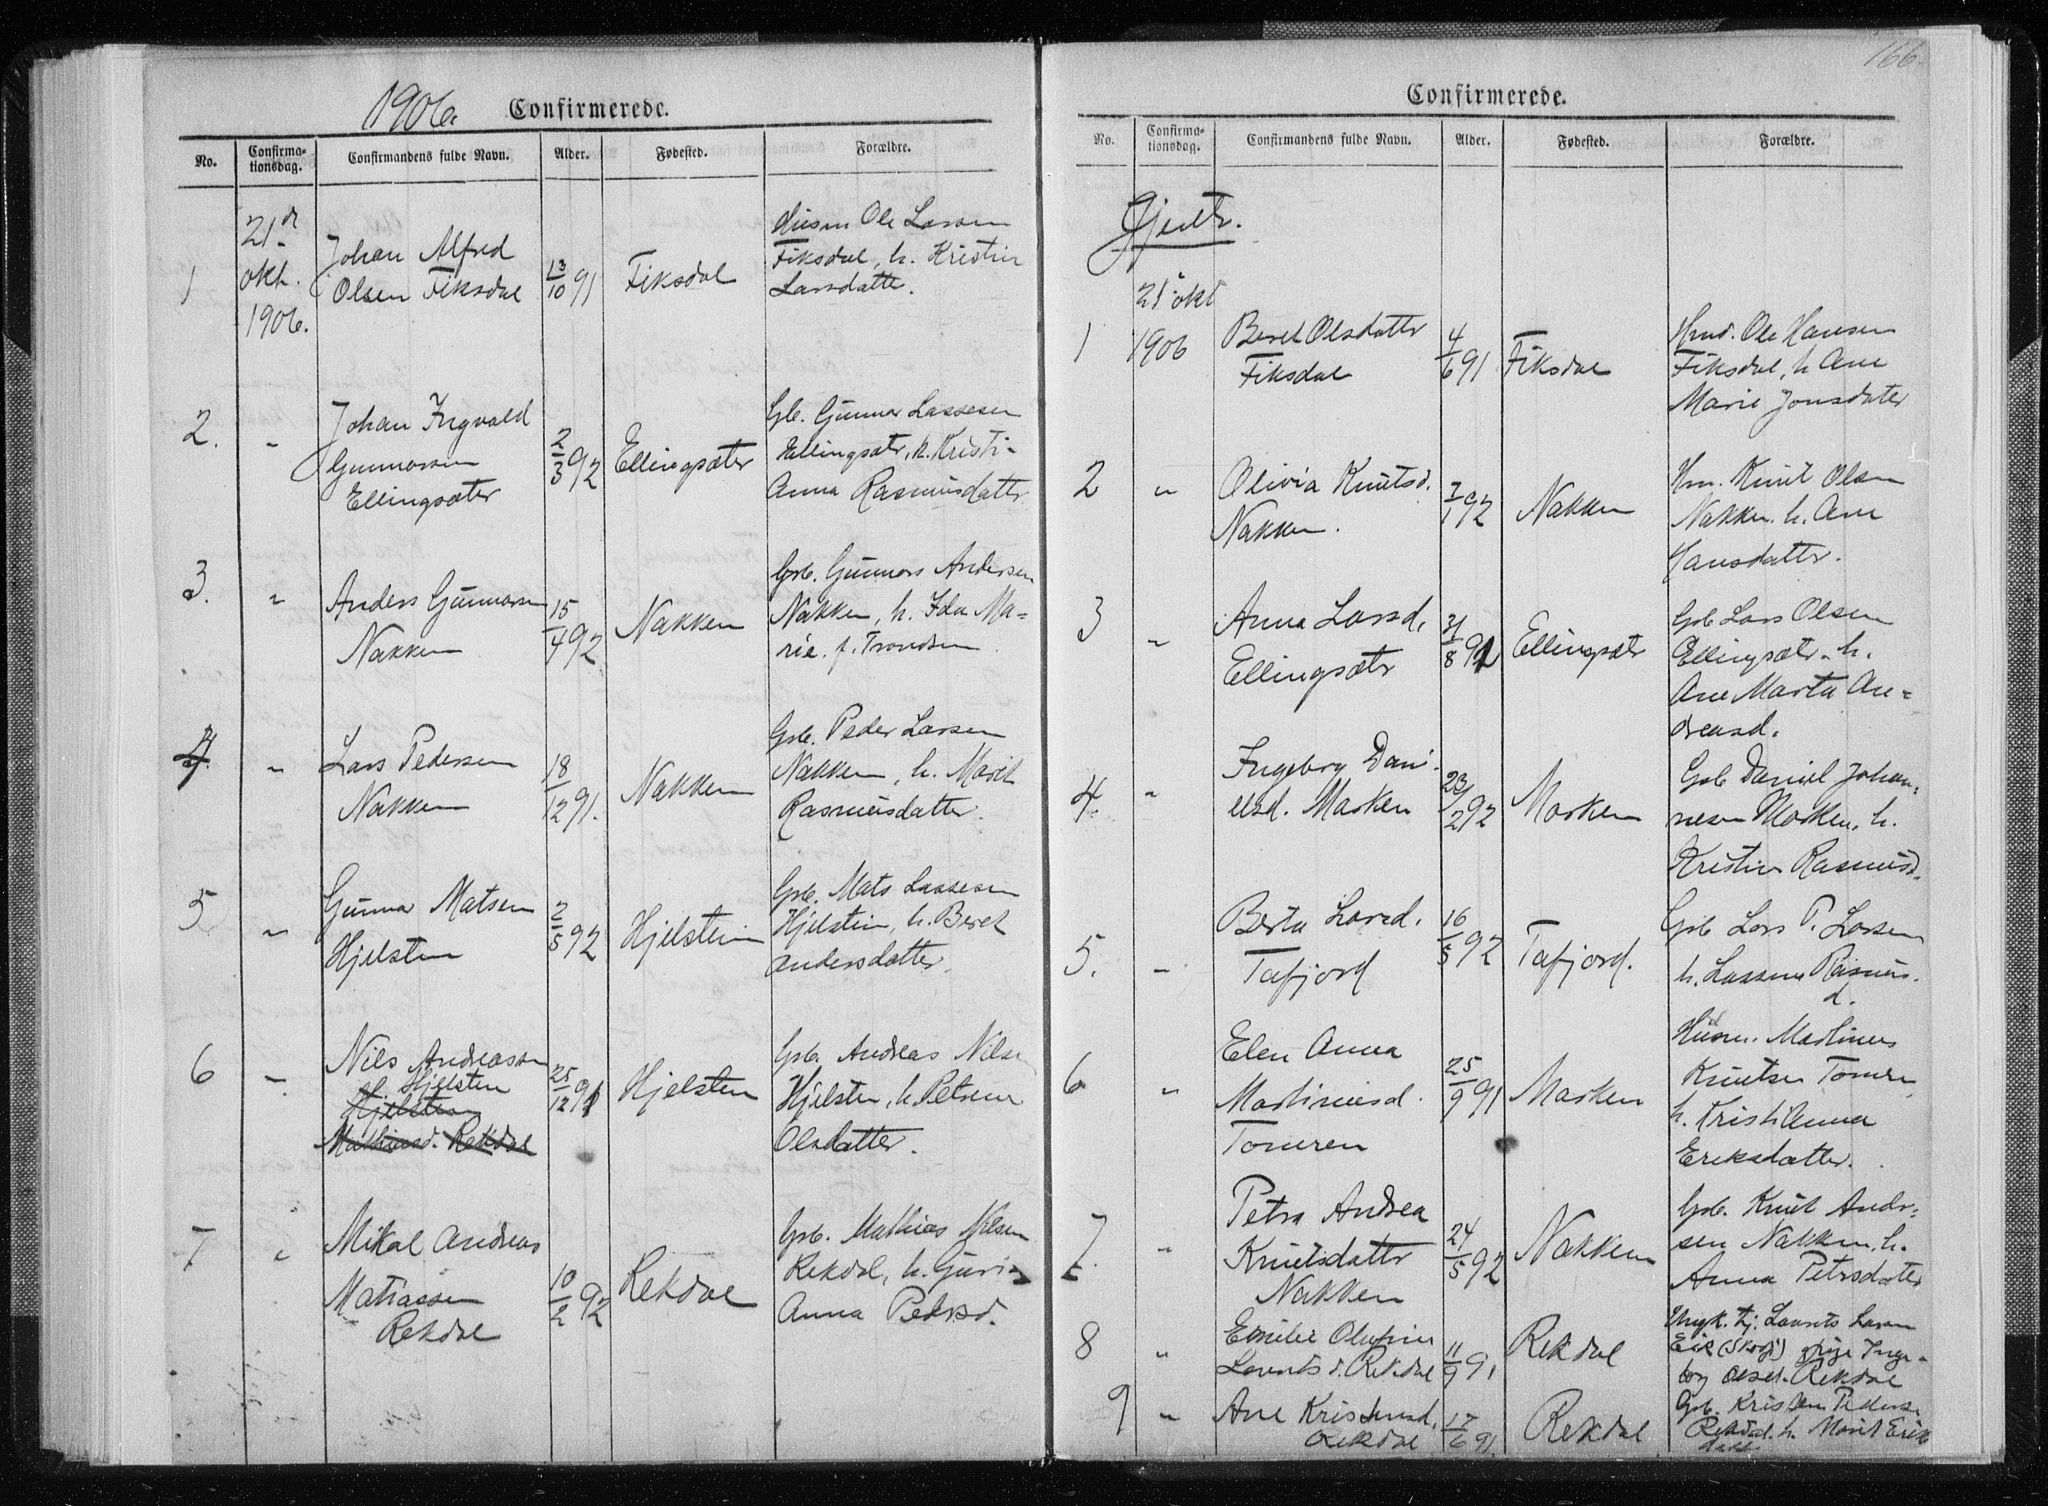 1906. Confirmerede.
No. Confirma-tionsdag. Confirmandens fulde Navn. Alder. Fødested. Forældre.
1
21de
okt.
1906.
Johan Alfred
Olsen Fiksdal
13/10 91
Fiksdal
Husm Ole Larsen
Fiksdal, h. Kristin
Larsdatter.
2.
"
Johan Ingvald
Gunnarsen
Ellingsæter
2/3 92
Ellingsæter
Gb. Gunnar Lassesen
Ellingsætr, h. Kristi-
Anna Rasmusdattr
3.
"
Anders Gunnarsen
Nakken
15/4 92
Nakken
Grb. Gunnars Andersen
Nakken, h. Ida Ma-
rie. f. Trondsen
4.
"
Lars Pedersen
Nakken
18/12 91.
Nakken
Grb. Peder Larsen
Nakken, h. Marit
Rasmusdatter.
5
"
Gunnar Matsen
Hjelsten
2/5 92
Hjelstein
Grb. Mats Lassesen
Hjelstein, h. Beret
Andersdatter.
6
"
Nils Andreassen
Hjelsten
Hjelsten
Mathiasd. Rekdal
25/12 91
Hjelsten
Grb. Andreas Nilsen
Hjelsten, h. Petrine
Olsdatter.
7
"
Mikal Andreas
Matiassen
Rekdal
10/2 92
Rekdal
Grb. Mathias Nilsen
Rekdal, h. Guri-
Anna Pedersd.
166.
Confirmerede.
No. Confirma-tionsdag. Confirmandens fulde Navn. Alder. Fødested. Forældre.
Gjentr.
1
21 okt
1906
Beret Olsdattr
Fiksdal
4/6 91
Fiksdal
Hmd. Ole Hansen
Fiksdal, h Ane
Marie Jonsdater
2
"
Olivia Knutsd.
Nakken.
7/1 92
Nakken
Hm. Knut Olsen
Nakken. h. Ane
Hansdattr.
3
"
Anna Larsd.
Ellingsætr
31/8 91
Ellingsætr
Grb Lars Olsen
Ellingsætr. h.
Ane Marta An-
dreasd.
4.
"
Ingeborg Dani-
elsd. Marken
23/2 92
Marken
Grb Daniel Johan-
nesen Marken, h.
Kristine Rasmusd.
5.
"
Berta Larsd.
Tafjord
16/5 92
Tafjord.
Grb Lars P. Larsen
h. Lassine Rasmus.
d.
6
"
Elen Anna
Martinusd.
Tomren
25/9 91
Marken
Husm. Martinus
Knutsen Tomren
h. KristiAnna
Eriksdatter.
7.
"
Petra Andrea
Knutsdattr
Nakken
24/5 92
Nakken
Grb. Knut Andr-
sen Nakken, h.
Anna Petrsdater
8
"
Emilie Olufine
Lauritsd. Rekdal
11/9 91
Rekdal
Ungk. tj. Laurits Larsen
Eik (Skodje) pige Inge-
borg Olsd. Rekdal
9
"
Ane Kristensd.
Rekdal
17/6 91.
Rekdal
Grb. Kristen Pedersen
Rekdal. h. Marit Erik
datt.